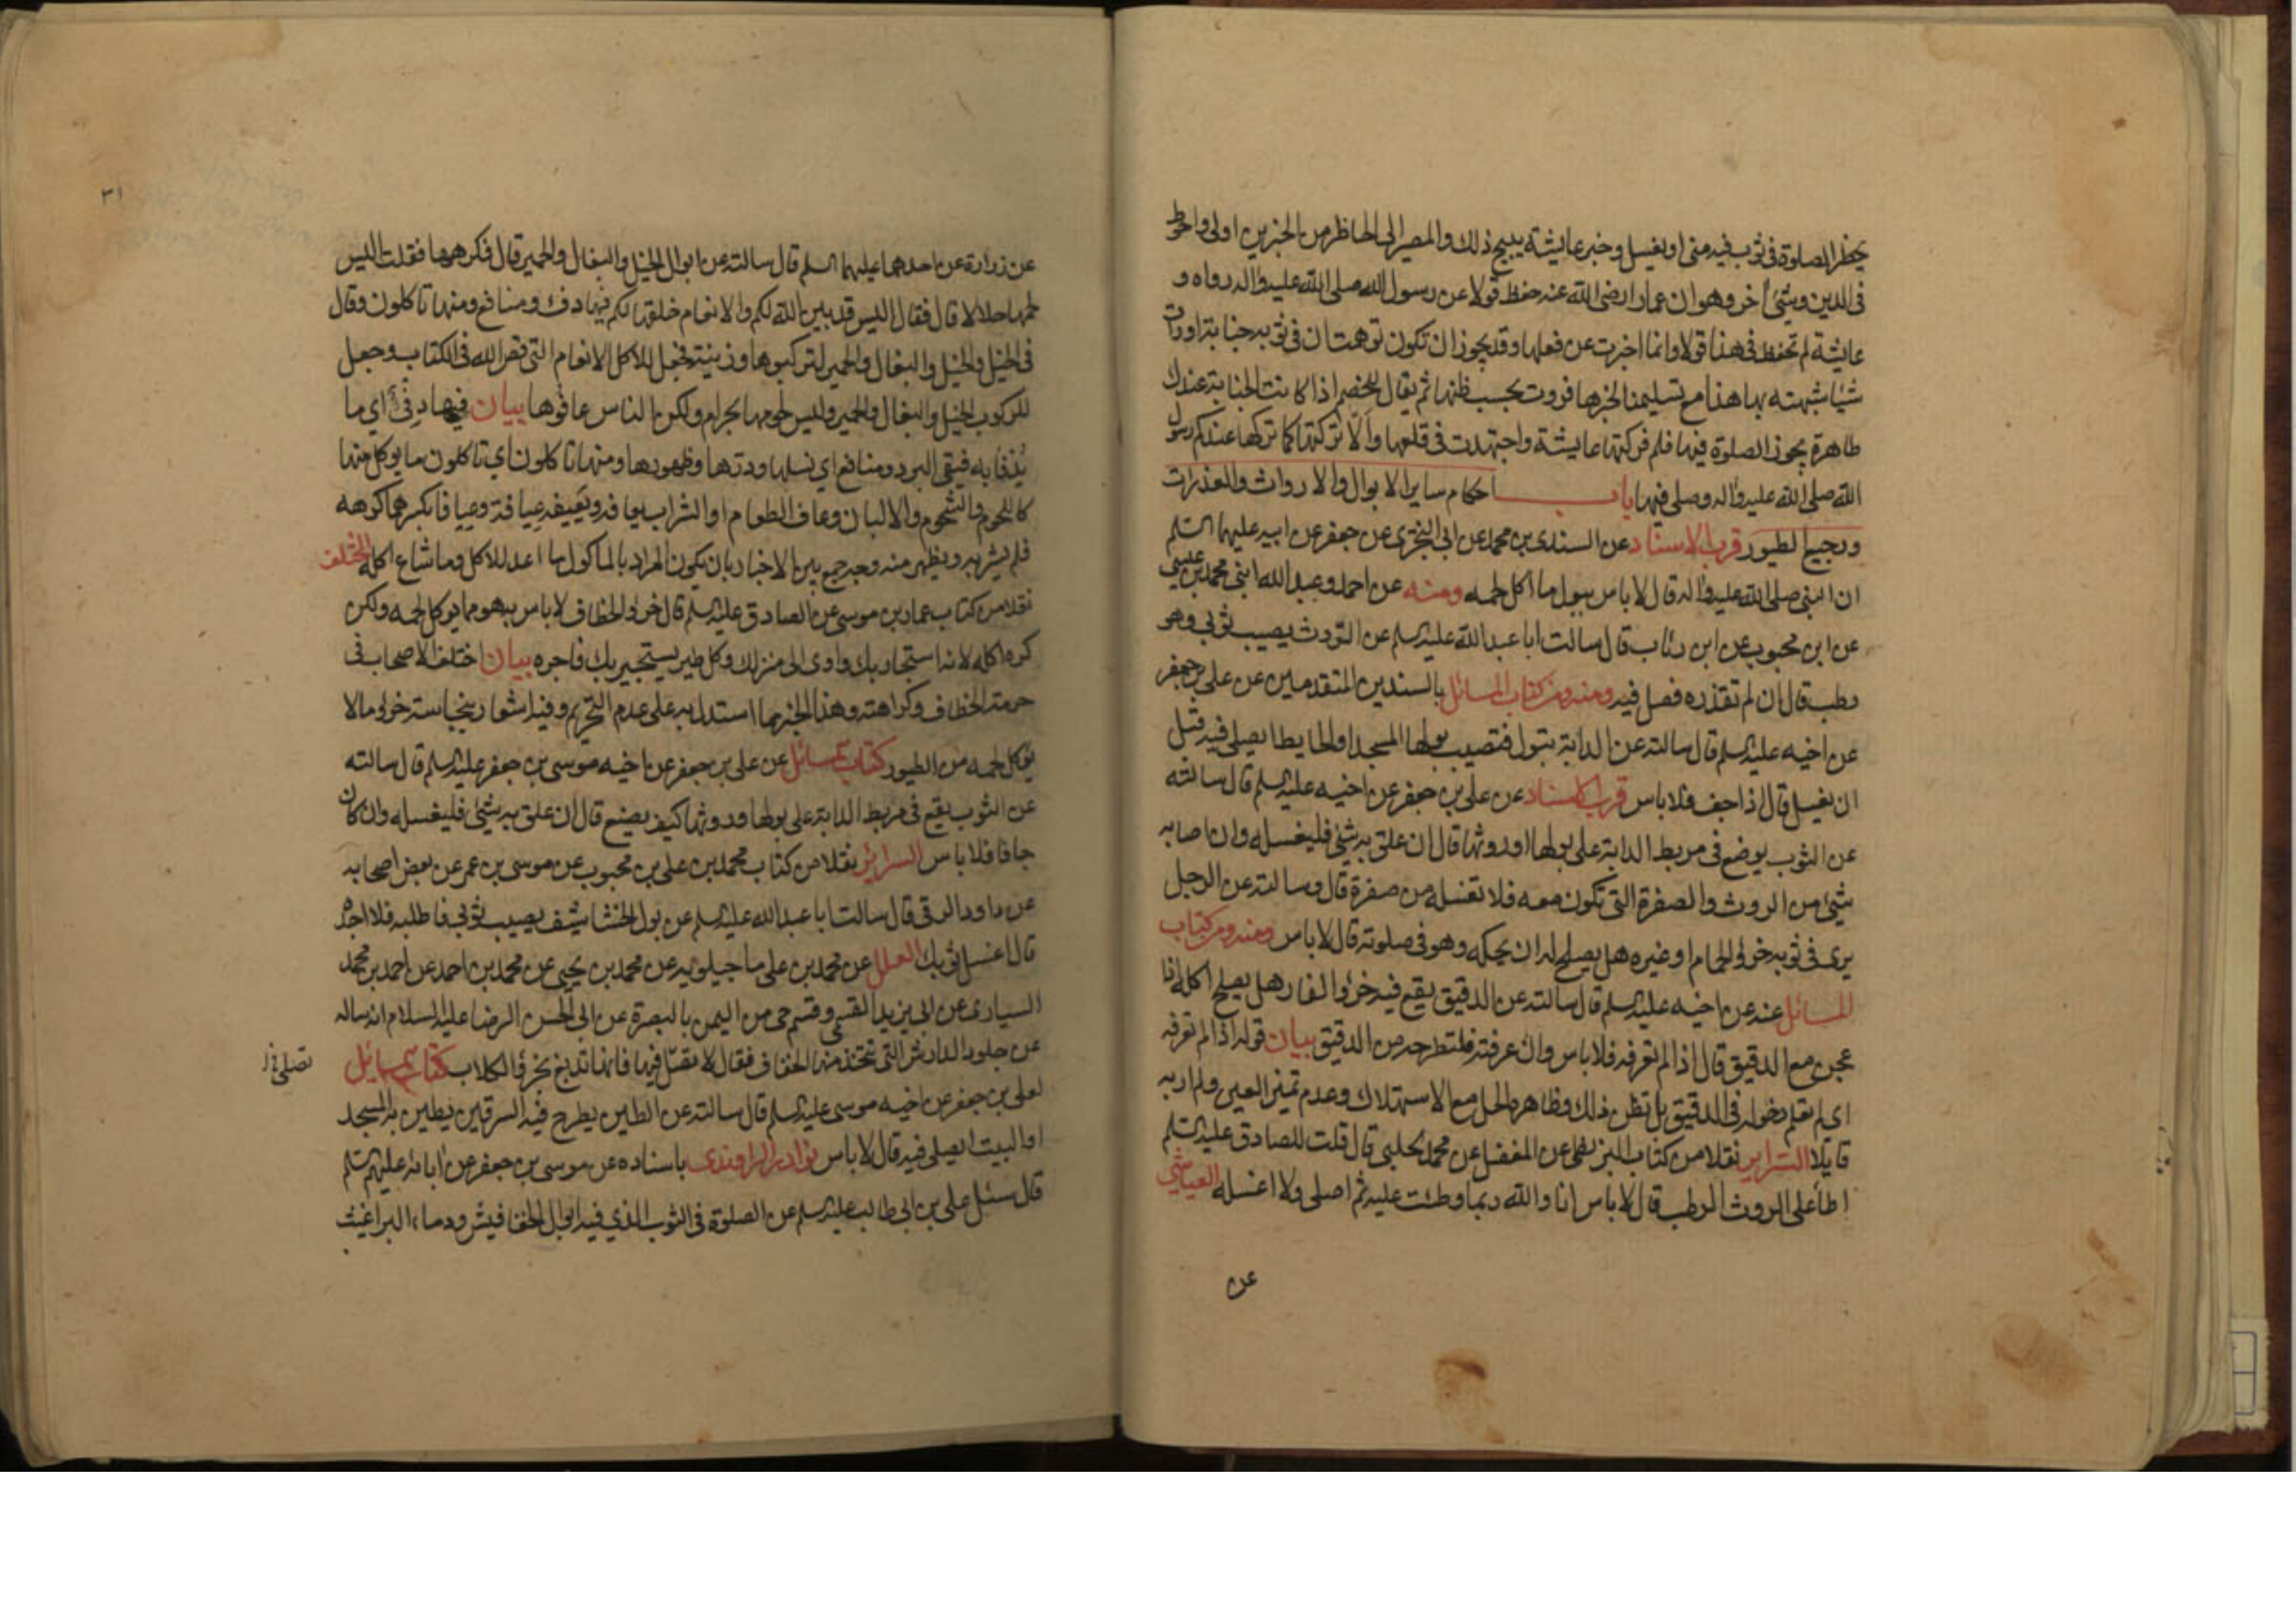 يحظر الصلوة فى ثوب فيه منى او يغسل وخبر عايشة يبيح ذلك والمصير الى الحاظر من الخبرين اولى واحوط
فى الدين وشئ آخر وهو ان عمارا رضى الله عنه حفظ قولا عن رسول الله صلى الله عليه واله رواه و
عايشة لم تحفظ فى هذا قولا وانما اخبرت عن فعلها وقد يجوز ان تكون توهمت ان فى ثوبه جنابة او رات
شيئا شبهته بها هذا مع تسليمنا لخبرها فروت بحسب ظنها ثم يقال للخصم اذا كانت الجنابة عندك
طاهرة يجوز الصلوة فيها فلم فركتها عايشة واجتهدت فى قلعها والا تركتها كما تركها عندكم رسول
الله صلى الله عليه واله وصلى فيها باب احكام ساير الابوال والارواث والعذرات
ورجيع الطيور قرب الاسناد عن السندى بن محمد عن ابى البخترى عن جعفر عن ابيه عليهما السلم
ان النبى صلى الله عليه واله قال لا باس ببول ما اكل لحمه ومنه عن احمد وعبد الله ابنى محمد بن عيسى
عن ابن محبوب عن ابن رئاب قال سالت ابا عبد الله عليه السلم عن الروث يصيب ثوبى وهو
رطب قال ان لم تقذره فصل فيه ومنه ومن كتاب المسائل بالسندين المتقدمين عن على بن جعفر
عن اخيه عليه السلم قال سالته عن الدابة تبول فتصيب بولها المسجد او الحايط ايصلى فيه قبل
ان يغسل قال اذا جف فلا باس قرب الاسناد عن على بن جعفر عن اخيه عليه السلم قال سالته
عن الثوب يوضع فى مربط الدابة على بولها او روثها قال ان علق به شئ فليغسله وان اصابه
شئ من الروث والصفرة التى تكون معه فلا تغسله من صفرة قال وسالته عن الرجل
يرى فى ثوبه خرؤ الحمام او غيره هل يصلح له ان يحكه وهو فى صلوته قال لا باس ومنه ومن كتاب
المسائل عنه عن اخيه عليه السلم قال سالته عن الدقيق يقع فيه خرؤ الفار هل يصلح اكله اذا
عجن مع الدقيق قال اذا لم تعرفه فلا باس وان عرفته فلتطرحه من الدقيق بيان قوله اذا لم تعرفه
اى لم تعلم دخوله فى الدقيق بل تظن ذلك وظاهره الحل مع الاستهلاك وعدم تميز العين ولم ار به
قايلا السراير نقلا من كتاب البزنطى عن المفضل عن محمد الحلبى قال قلت للصادق عليه السلم
اطأ على الروث الرطب قال لا باس انا والله ربما وطئت عليه ثم اصلى ولا اغسله العياشي
عن
٣١
عن زرارة عن احدهما عليهما السلم قال سالته عن ابوال الخيل والبغال والحمير قال فكرهها فقلت اليس
لحمها حلالا قال فقال اليس قد بين الله لكم والانعام خلقها لكم فيها دفء ومنافع ومنها تاكلون وقال
فى الخيل والخيل والبغال والحمير لتركبوها وزينة فجعل للاكل الانعام التى قص الله فى الكتاب وجعل
للركوب الخيل والبغال والحمير وليس لحومها بحرام ولكن الناس عافوها بيان فيها دفئ اي ما
يدفأ به فيقى البرد ومنافع اي نسلها ودرها وظهورها ومنها تاكلون اي تاكلون ما يوكل منها
كاللحوم والشحوم والالبان وعاف الطعام او الشراب يعافه ويعيفه عيافة وعيافا بكسرهما كرهه
فلم يشربه ويظهر منه وجه جمع بين الاخبار بان يكون المراد بالماكول ما اعد للاكل وما شاع اكله المختلف
نقلا من كتاب عمار بن موسى عن الصادق عليه السلم قال خرؤ الخطاف لا باس به هو مما يوكل لحمه ولكن
كره اكله لانه استجار بك واوى الى منزلك وكل طير يستجير بك فاجره بيان اختلف الاصحاب فى
حرمة الخطاف وكراهته وهذا الخبر مما استدل به على عدم التحريم وفيه اشعار بنجاسة خرؤ ما لا
يوكل لحمه من الطيور كتاب المسائل عن على بن جعفر عن اخيه موسى بن جعفر عليه السلم قال سالته
عن الثوب يقع فى مربط الدابة على بولها وروثها كيف يصنع قال ان علق به شئ فليغسله وان كان
جافا فلا باس السرائر نقلا من كتاب محمد بن على بن محبوب عن موسى بن عمر عن بعض اصحابه
عن داود الرقى قال سالت ابا عبد الله عليه السلم عن بول الخشاشيف يصيب ثوبى فاطلبه فلا اجده
قال اغسل ثوبك العلل عن محمد بن على ماجيلويه عن محمد بن يحيى عن محمد بن احمد عن احمد بن محمد
السيارى عن ابى يزيد القسمى وقسم حى من اليمن بالبصرة عن ابى الحسن الرضا عليه السلام انه ساله
عن جلود الدارش التى تتخذ منها الخفاف فقال لا تصل فيها فانها تدبغ بخرؤ الكلاب كتاب المسائل
تصلى خ ل
لعلى بن جعفر عن اخيه موسى عليه السلم قال سالته عن الطين يطرح فيه السرقين يطين به المسجد
او البيت ايصلى فيه قال لا باس نوادر الراوندى باسناده عن موسى بن جعفر عن ابائه عليهم السلم
قال سئل على بن ابى طالب عليه السلم عن الصلوة فى الثوب الذي فيه ابوال الخفافيش ودماء البراغيث